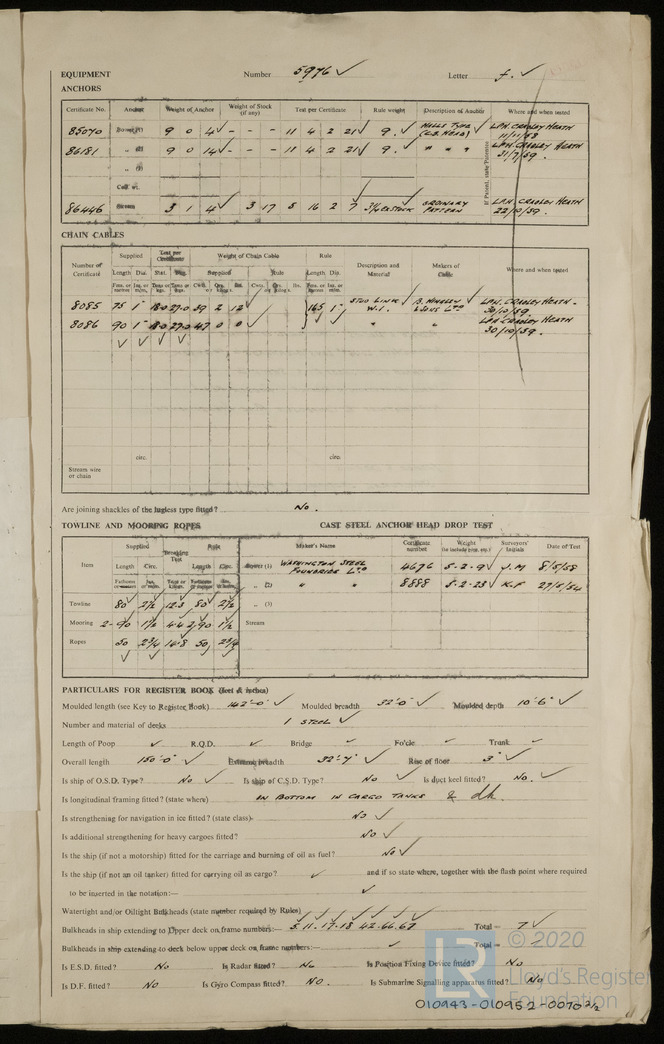 EQUIPMENT Number 5976 ✓ Letter f. ✓
ANCHORS
Certificate No. Anchor Weight of Anchor Weight of Stock (if any) Test per Certificate Rule weight Description of Anchor Where and when tested
85070 Bower (1) 9 0 4 ✓ - - - 11 4 2 21 ✓ 9. ✓ HALLS TYPE (C.S. HEAD) ✓ LPH. CRADLEY HEATH 11/11/58
86181 „ (2) 9 0 14 ✓ - - - 11 4 2 21 ✓ 9. ✓ " " " LPH. CRADLEY HEATH 31/7/59.
„ (3)
If Patent, state Patentee
86446 Stream 3 1 4 ✓ 3 17 5 16 2 7 ORDINARY PATTERN LPH. CRADLEY HEATH 22/10/59.
CHAIN CABLES
Number of Certificate Supplied Test per Certificate Weight of Chain Cable Rule Description and Material Makers of Cable Where and when tested
Length Dia. Stat. Supplied Rule Length Dia.
8085 75 1" 18.0 27.0 39 2 12 ✓ 165 1" STUD LINK W.I. B. HINGLEY & SONS LTD LPH. CRADLEY HEATH. 30/10/59.
8086 90 1" 18.0 27.0 47 0 0 ✓ " " LPH. CRADLEY HEATH 30/10/59.
circ. circ.
Stream wire or chain
Are joining shackles of the lugless type fitted? No.
TOWLINE AND MOORING ROPES CAST STEEL ANCHOR HEAD DROP TEST
Item Supplied Breaking Test Rule Maker's Name Certificate number Weight (to include pins, etc.) Surveyors' Initials Date of Test
Length Circ. Length Circ.
Bower (1) WASHINGTON STEEL FOUNDRIES LTD 4676 5-2-9 J.M 8/5/58
„ (2) " " 8888 5-2-23 K.F
Towline 80 2½ 12.3 80 2½ „ (3)
Mooring 2-90 1½ 4.4 2/90 1½ Stream
Ropes 50 2¾ 14.8 50 2¾
PARTICULARS FOR REGISTER BOOK (feet & inches)
Moulded length (see Key to Register Book) 142'-0" ✓ Moulded breadth 32'-0" ✓ Moulded depth 10'-6" ✓
Number and material of decks 1 STEEL ✓
Length of Poop ✓ R.Q.D. ✓ Bridge ✓ Fo'cle ✓ Trunk ✓
Overall length 150'-0" ✓ Extreme breadth 32'-7" ✓ Rise of floor 3" ✓
Is ship of O.S.D. Type? No ✓ Is ship of C.S.D. Type? No ✓ Is duct keel fitted? No. ✓
Is longitudinal framing fitted? (state where) ON BOTTOM IN CARGO TANKS & dk.
Is strengthening for navigation in ice fitted? (state class). No ✓
Is additional strengthening for heavy cargoes fitted? No ✓
Is the ship (if not a motorship) fitted for the carriage and burning of oil as fuel? No ✓
Is the ship (if not an oil tanker) fitted for carrying oil as cargo? ✓ and if so state where, together with the flash point where required
to be inserted in the notation:— ✓
Watertight and/or Oiltight Bulkheads (state number required by Rules)
Bulkheads in ship extending to Upper deck on frame numbers:— 5. 11. 17. 18 42. 66. 67 Total = 7 ✓
Bulkheads in ship extending to deck below upper deck on frame numbers:— ✓ Total =
Is E.S.D. fitted? No Is Radar fitted? No Is Position Fixing Device fitted? No
Is D.F. fitted? No Is Gyro Compass fitted? No. Is Submarine Signalling apparatus fitted? No
LR © 2020 Lloyd's Register Foundation
010943-010952-0070 2/2